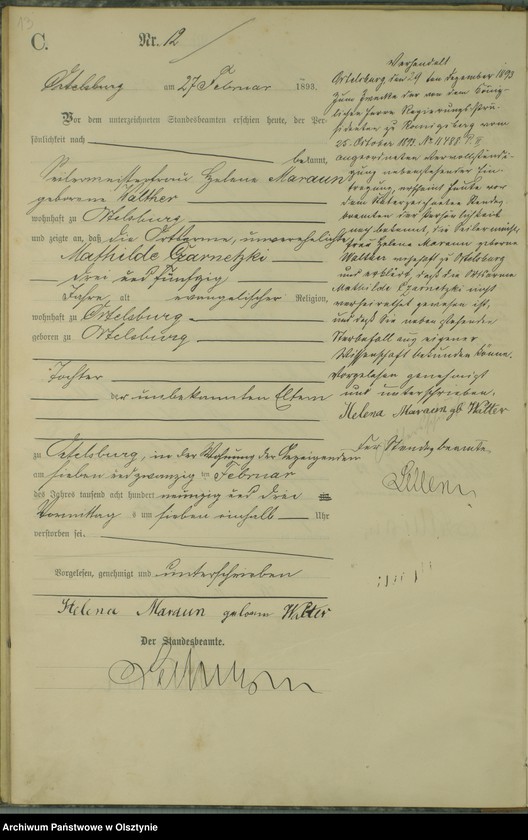 13
C.
Nr. 12
Ortelsburg am 27 Februar 1893.
Vor dem unterzeichneten Standesbeamten erschien heute, der Per-
sönlichkeit nach
bekannt,
Seilermeisterfrau Helene Maraun
geborene Walther
wohnhaft zu Ortelsburg
und zeigte an, daß die Ortsarme, unverehelichte
Mathilde Czarnetzki
drei und fünfzig
Jahre, alt evangelischer Religion,
wohnhaft zu Ortelsburg
geboren zu Ortelsburg
Tochter
der unbekannten Eltern
zu Ortelsburg, in der Wohnung der Anzeigenden
am sieben und zwanzig ten Februar
des Jahres tausend acht hundert neunzig und drei
Vormittags um sieben einhalb Uhr
verstorben sei.
Vorgelesen, genehmigt und unterschrieben
Helena Maraun geboren Walter
Der Standesbeamte.
Verhandelt
Ortelsburg den 29 ten Dezember 1893
Zum Zwecke der von dem König-
lichen Herrn Regierungs Präsi-
denten zu Koenigsberg vom
25. October 1893. No 11488
angeordneten Vervollständi-
gung nebenstehender Ein-
tragung, erscheint heute vor
dem unterzeichneten Standes-
beamten der Persönlichkeit
nach bekannt, die Seilermeister
frau Helene Maraun geborne
Walther wohnhaft zu Ortelsburg
und erklärt, daß die Ortsarme
Mathilde Czarnetzki nicht
verheirathet gewesen ist,
und daß Sie neben stehenden
Sterbefall aus eigener
Wissenschaft bekunden könne.
Vorgelesen genehmigt
und unterschrieben.
Helena Maraun gb Walter
Der Standesbeamte
Archiwum Państwowe w Olsztynie